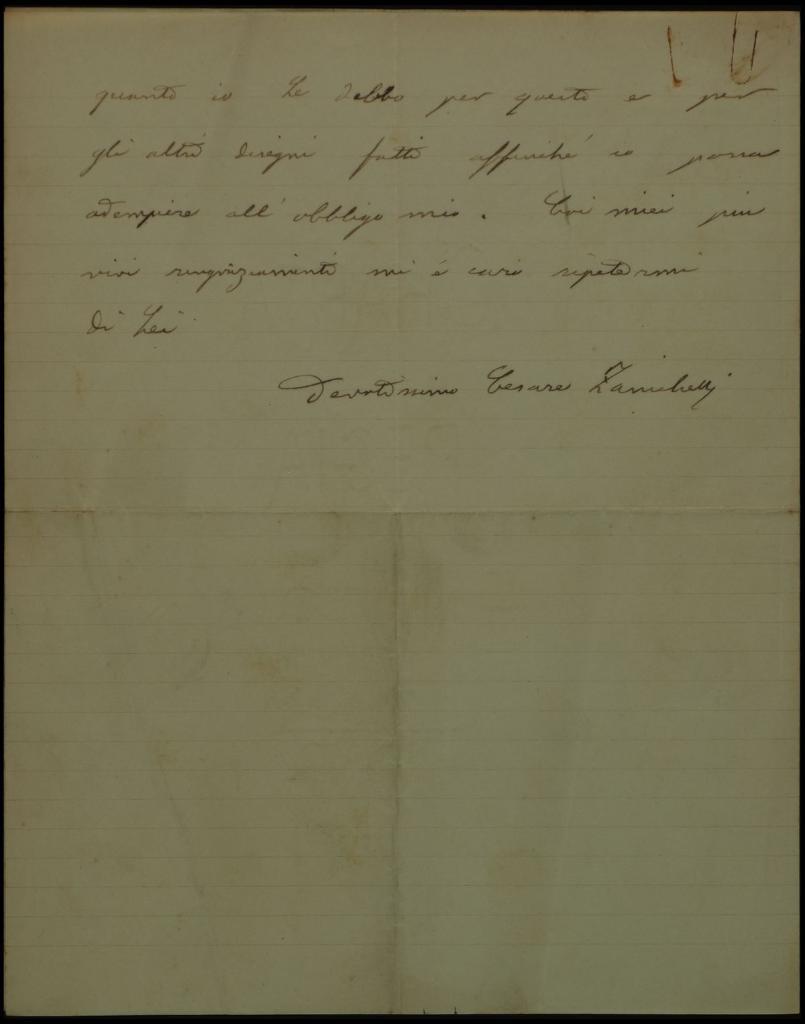 quanto io Le debbo per questo e per
gli altri disegni fatti affinché io possa
adempiere all' obbligo mio. Coi miei più
vivi ringraziamenti mi è caro ripetermi
di Lei
Devotissimo Cesare Zanichelli